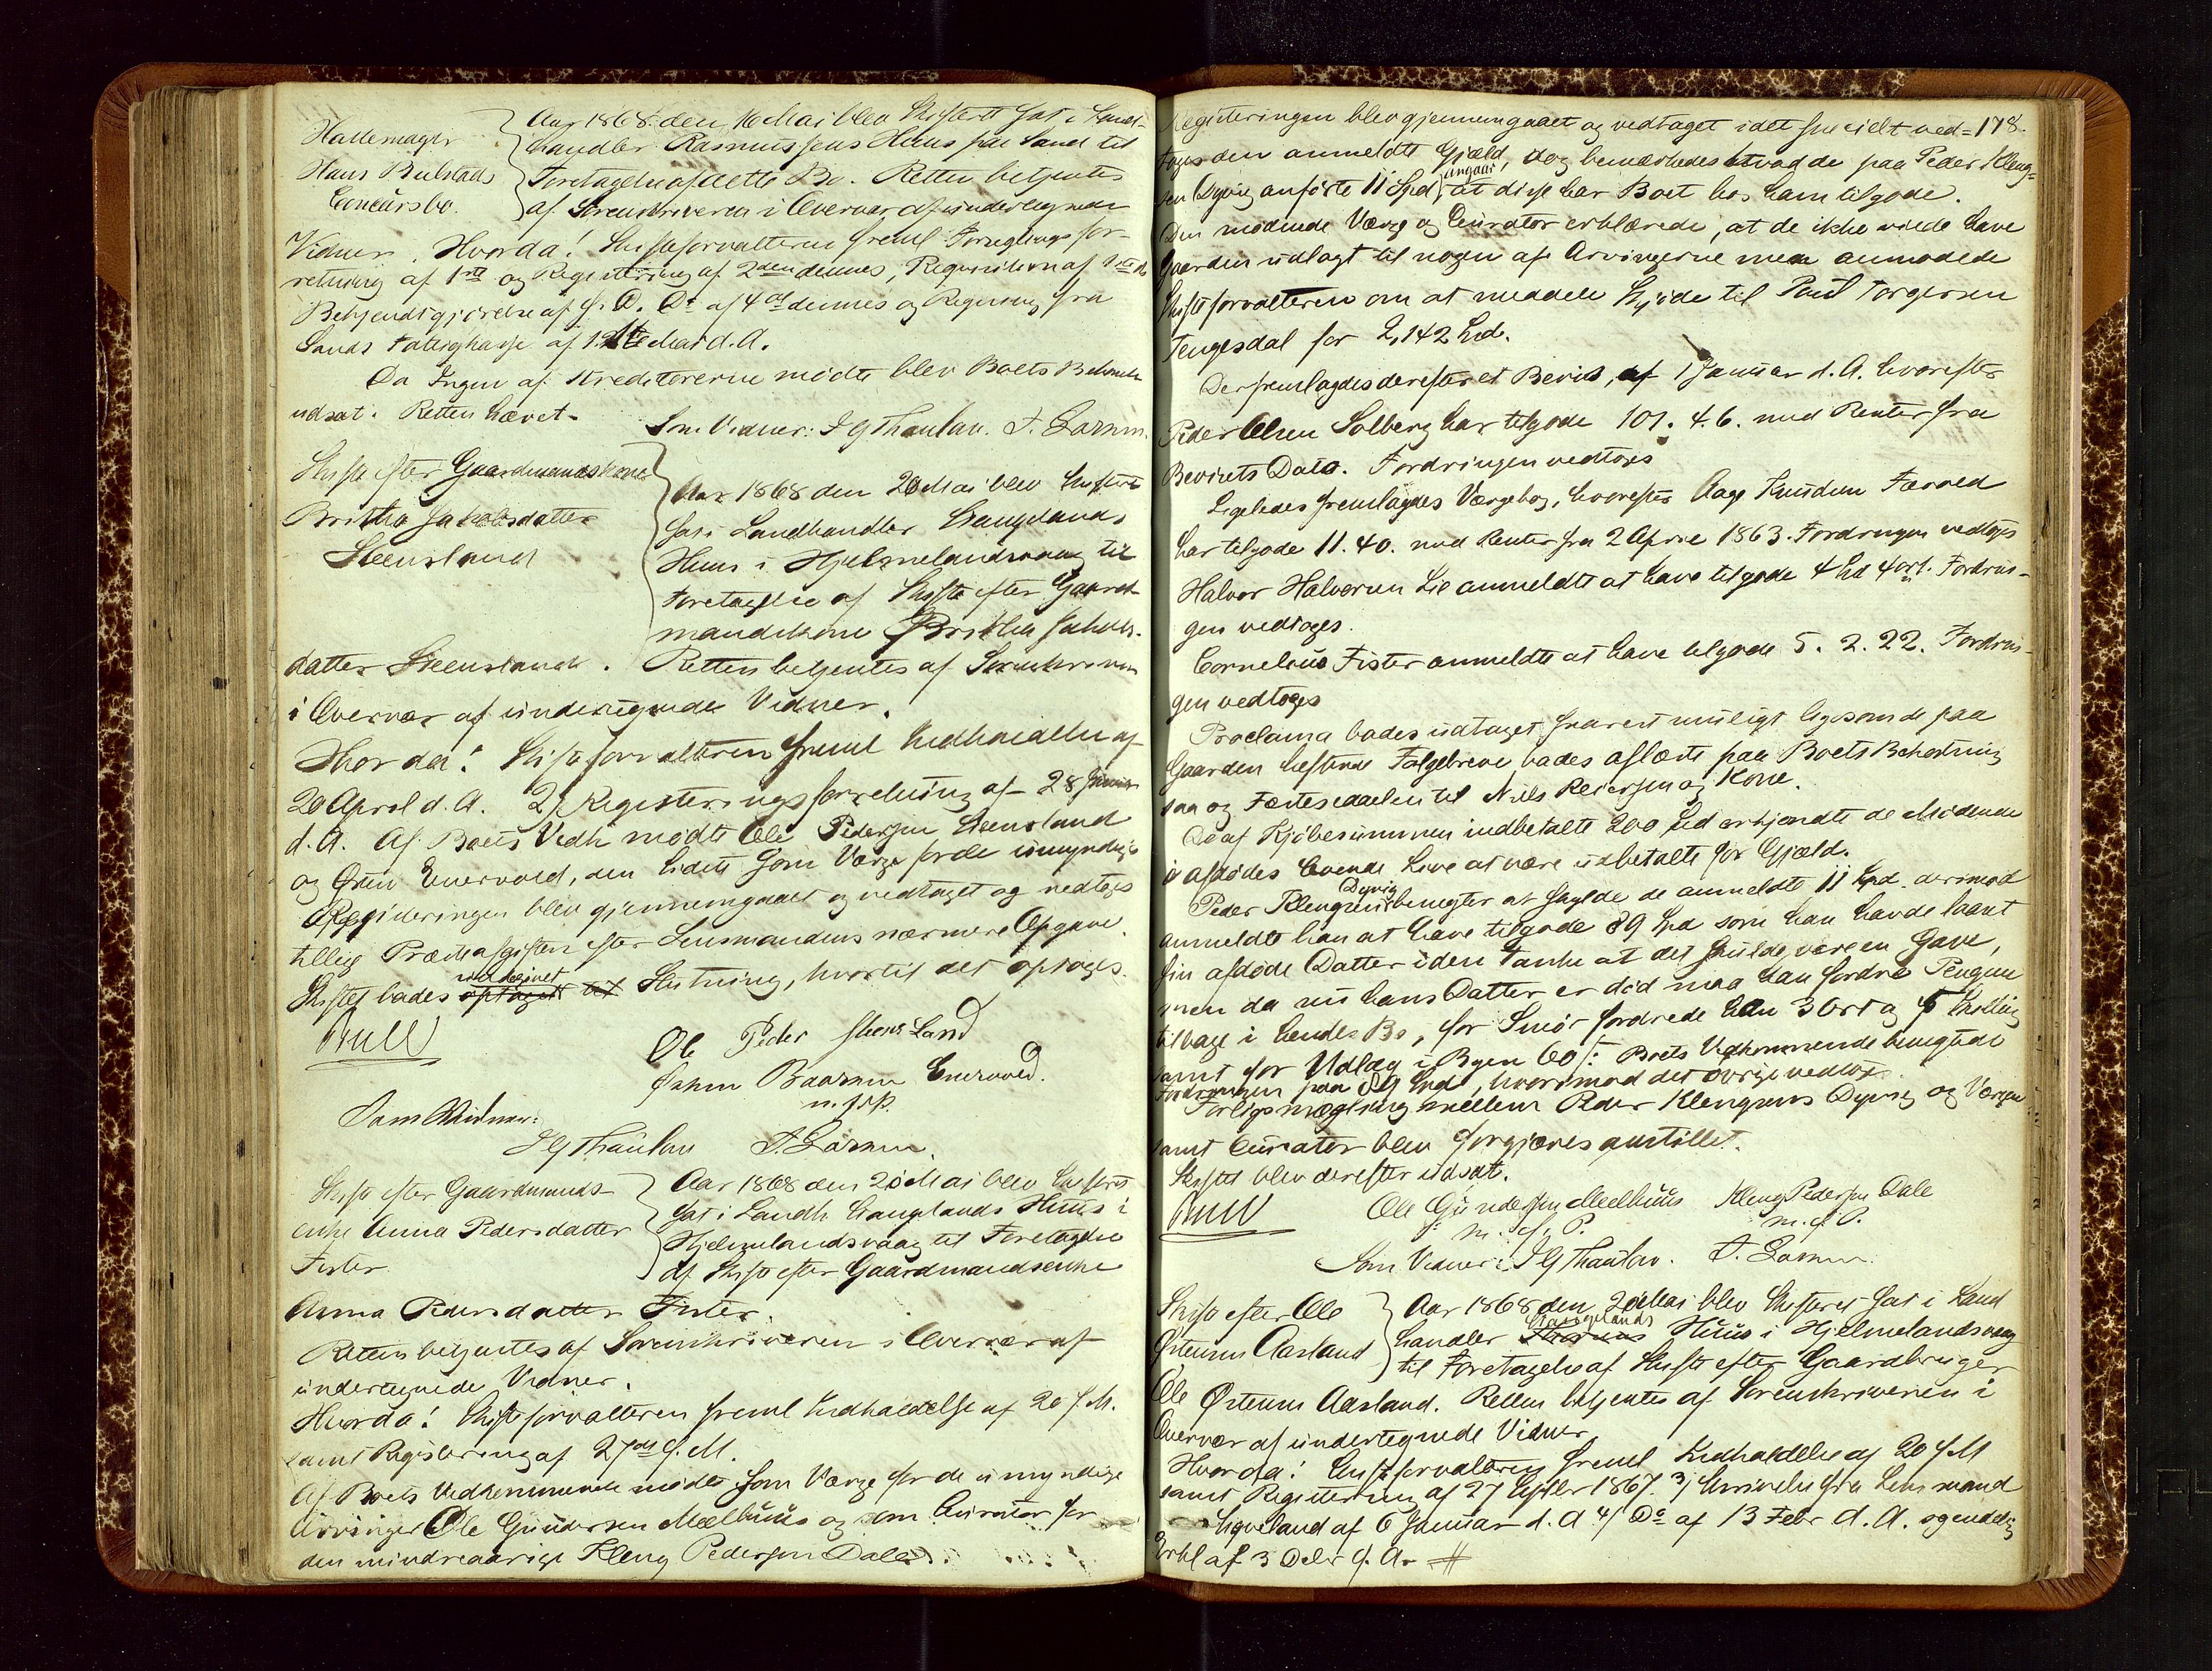 Hattemager
Hans Bulstads
Concursbo.
Aar 1868 den 16 Mai blev Skifteret sat i Land-
handler Rasmussens Huus paa Sand til
Foretagelse af dette Bo. Retten betjentes
af Sorenskriveren i Overvær af undertegnede
Vidner. Hvorda! Skifteforvalteren freml Forseglingsfor-
retning af 1ste og Registrering af 2den dennes, Requisition af
Bekjendtgjørelse af s. D. Do af 4de dennes og Regning fra
Sands Fattigkasse af Mai d.A.
Da Ingen af Kreditorerne mødte blev Boets Behandl
udsat. Retten hævet.
Som Vidner: I G Thaulow. T. Larsen.
Skifte efter Gaardmandskone
Britha Jakobsdatter
Steensland
Aar 1868 den 20 Mai blev Skifteret
sat i Landhandler Haugelands
Huus i Hjelmelandsvaag til
Foretagelse af Skifte efter Gaard-
mandskone Britha Jakobs-
datter Steensland. Retten betjentes af Sorenskriveren
i Overvær af undertegnede Vidner.
Hvorda! Skifteforvalteren freml Indkaldelse af
20 April d.A. 2) Registreringsforretning af 28 Januar
d.A. Af Boets Vedk mødte Ole Pedersen Steensland
og Enervold, den Sidste som Værge for de umyndige
Registeringen blev gjennemgaaet og vedtaget og vedtoges
tillige Præsteafgiften efter Lensmandens nærmere Opgave.
Skiftet bades optaget til Slutning, hvortil det optoges.
Bull
Ole Peder Stens Land
Baarsen Enervold.
m.f.p.
Som Vidner:
I G Thaulow T. Larsen.
Skifte efter Gaardmands-
enke Anna Pedersdatter
Fister
Aar 1868 den 20 Mai blev Skifteret
sat i Landh Haugelands Huus i
Hjelmelandsvaag til Foretagelse
af Skifte efter Gaardmandsenke
Anna Pedersdatter Fister.
Retten betjentes af Sorenskriveren i Overvær af
undertegnede Vidner.
Hvorda! Skifteforvalteren freml Indkaldelse af 20 f.M.
samt Registering af 27de f.M.
Af Boets Vedkommende mødte som Værge for de umyndige
Arvinger Ole Gundersen Mælhuus og som Curator for
den mindreaarige Kleng Pedersen Dale.
178.
Registeringen blev gjennemgaaet og vedtaget idet specielt ved-
toges den anmeldte Gjæld, dog bemærkedes hvad de paa Peder Kleng-
sen Dyvig anførte 11 Spd angaar, at disse har Boet hos ham tilgode.
Den mødende Værge og Curator erklærede, at de ikke vilde have
Gaarden udlagt til nogen af Arvingerne men anmodede
Skifteforvalteren om at meddele Skjøde til Poul Torgersen
Tengesdal for 2,142 Spd.
Der fremlagdes derefter et Bevis, af 1 Januar d.A. hvorefter
Peder Olsen Solberg har tilgode 101. 4. 6. med Renter fra
Bevisets Dato. Fordringen vedtoges
Ligeledes fremlagdes Værgebog, hvorefter Aage Knudsen
har tilgode 11. 40. med Renter fra 2 April 1863. Fordringen vedtoges
Halvor Halvorsen Lie anmeldte at have tilgode 4 Spd 4 ort. Fordrin-
gen vedtoges.
Cornelius Fister anmeldte at have tilgode 5. 2. 22. Fordrin-
gen vedtoges
Proclama bades udtaget snarest muligt ligesom de paa
Gaarden heftende Følgebreve bades aflæste paa Boets Bekostning
saa og Fæstesedelen til Niels Reiersen og Kone.
De af Kjøbesummen indbetalte 200 Spd erkjendte de Mødende
i afdødes levende Live at være udbetalte for Gjæld.
Peder Klengsen Dyvig benegter at skylde de anmeldte 11 Spd. derimod
anmeldte han at have tilgode 89 Spd som han havde laant
sin afdøde Datter i den Tanke at det skulde være en Gave,
men da nu hans Datter er død maa han fordre Pengene
tilbage i hendes Bo, for Smør fordrede han 3 Ort og 5 Skilling
samt for Udlæg i Byen 60 s: Boets Vedkommende benegtede
Fordringen paa 89 Spd, hvorimod det øvrige vedtoges.
Forligsmægling mellem Peder Klengsens Dyvig og Værgen
samt Curator blev forgjæves anstillet.
Skiftet blev derefter udsat.
Bull
Ole Gundersen Mælhuus Kleng Pedersen Dale
m. f. P. m. f. P.
Som Vidner: I G Thaulow. T. Larsen.
Skifte efter Ole
Østensen Aasland
Aar 1868 den 20 Mai blev Skifteret sat i Land
handler Haugelands Huus i Hjelmelandsvaag
til Foretagelse af Skifte efter Gaardbruger
Ole Østensen Aasland. Retten betjentes af Sorenskriveren i
Overvær af undertegnede Vidner
Hvorda! Skifteforvalteren freml Indkaldelse af 20 f M
samt Registering af 27 1867. 3) Skrivelse fra Lensmand
af 6 Januar d.A 4) Do af 13 Febr d.A. og endelig
Erkl af 3 Debr f.A.